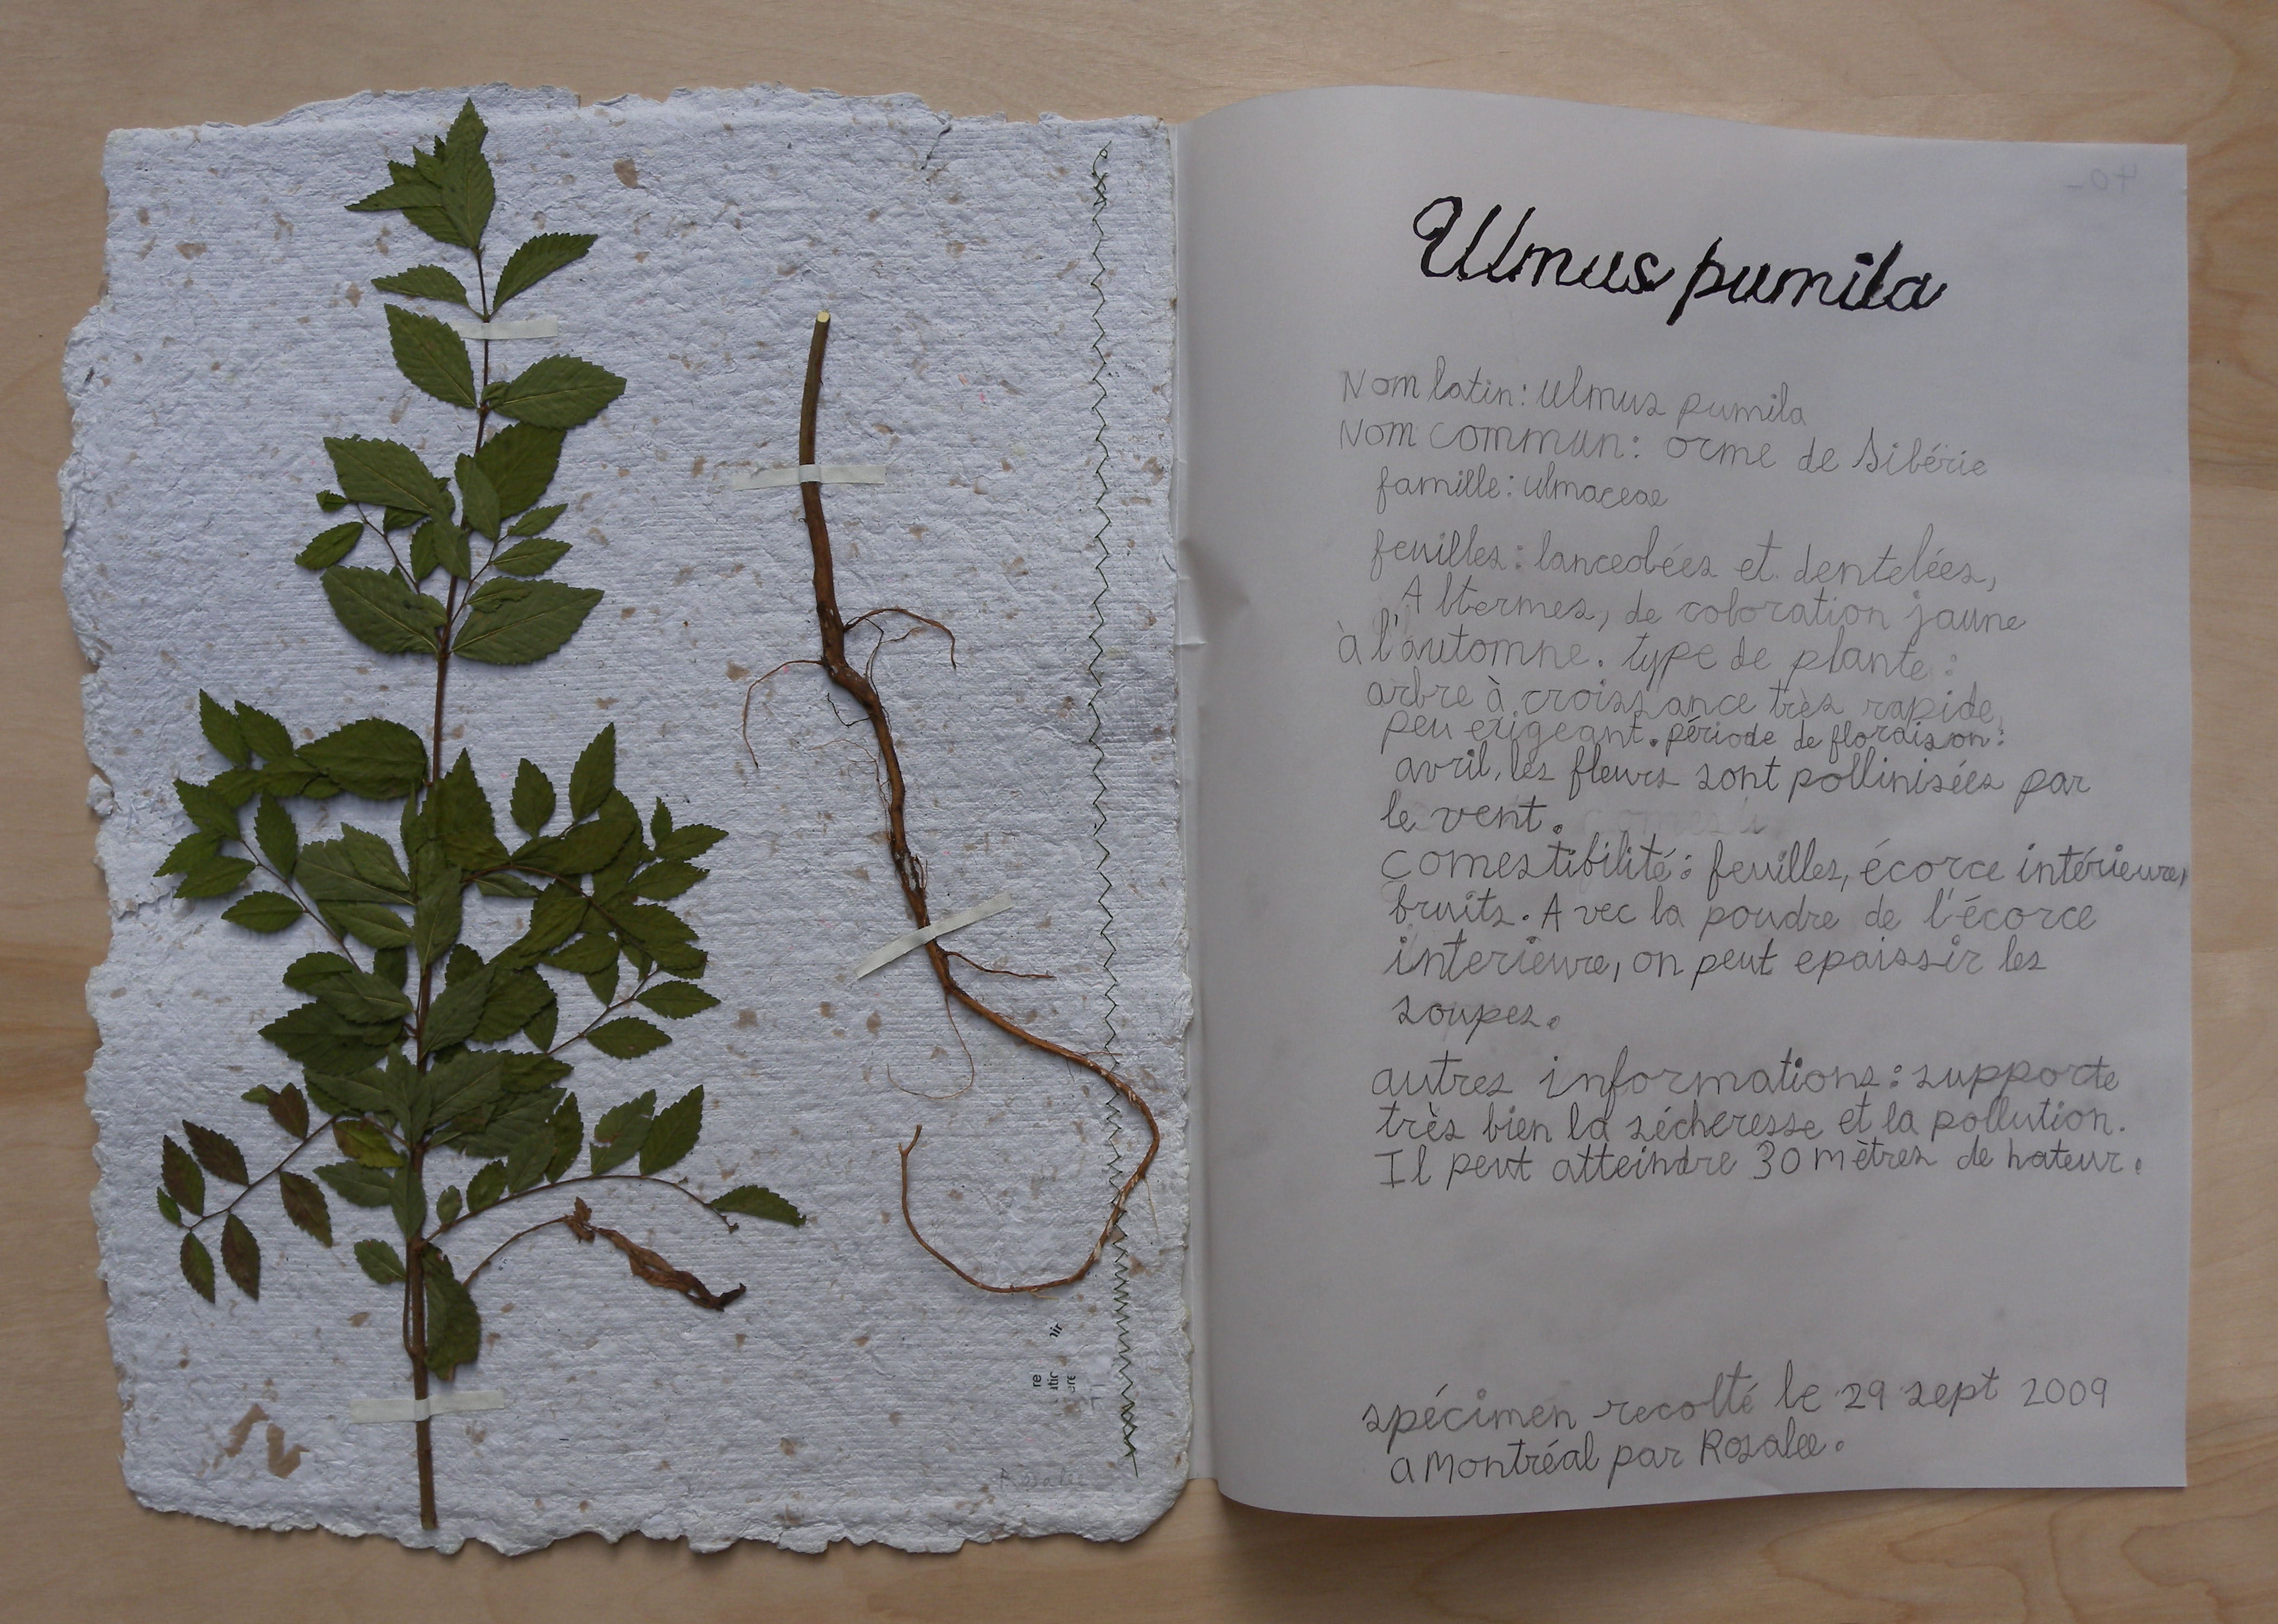 re
atic
ere
Rosalee
Ulmus pumila
Nom latin: ulmus pumila
Nom commun: orme de Sibérie
famille: ulmaceae
feuilles: lanceolées et dentelées,
Alternes, de coloration jaune
à l'automne. type de plante:
arbre à croissance très rapide,
peu exigeant. période de floraison:
avril. les fleurs sont pollinisées par
le vent.
comestibilité: feuilles, écorce intérieure,
fruits. Avec la poudre de l'écorce
interieure, on peut epaissir les
soupes.
autres informations: supporte
très bien la sécheresse et la pollution.
Il peut atteindre 30 mètres de hateur.
spécimen recolté le 29 sept 2009
a Montréal par Rosalee.